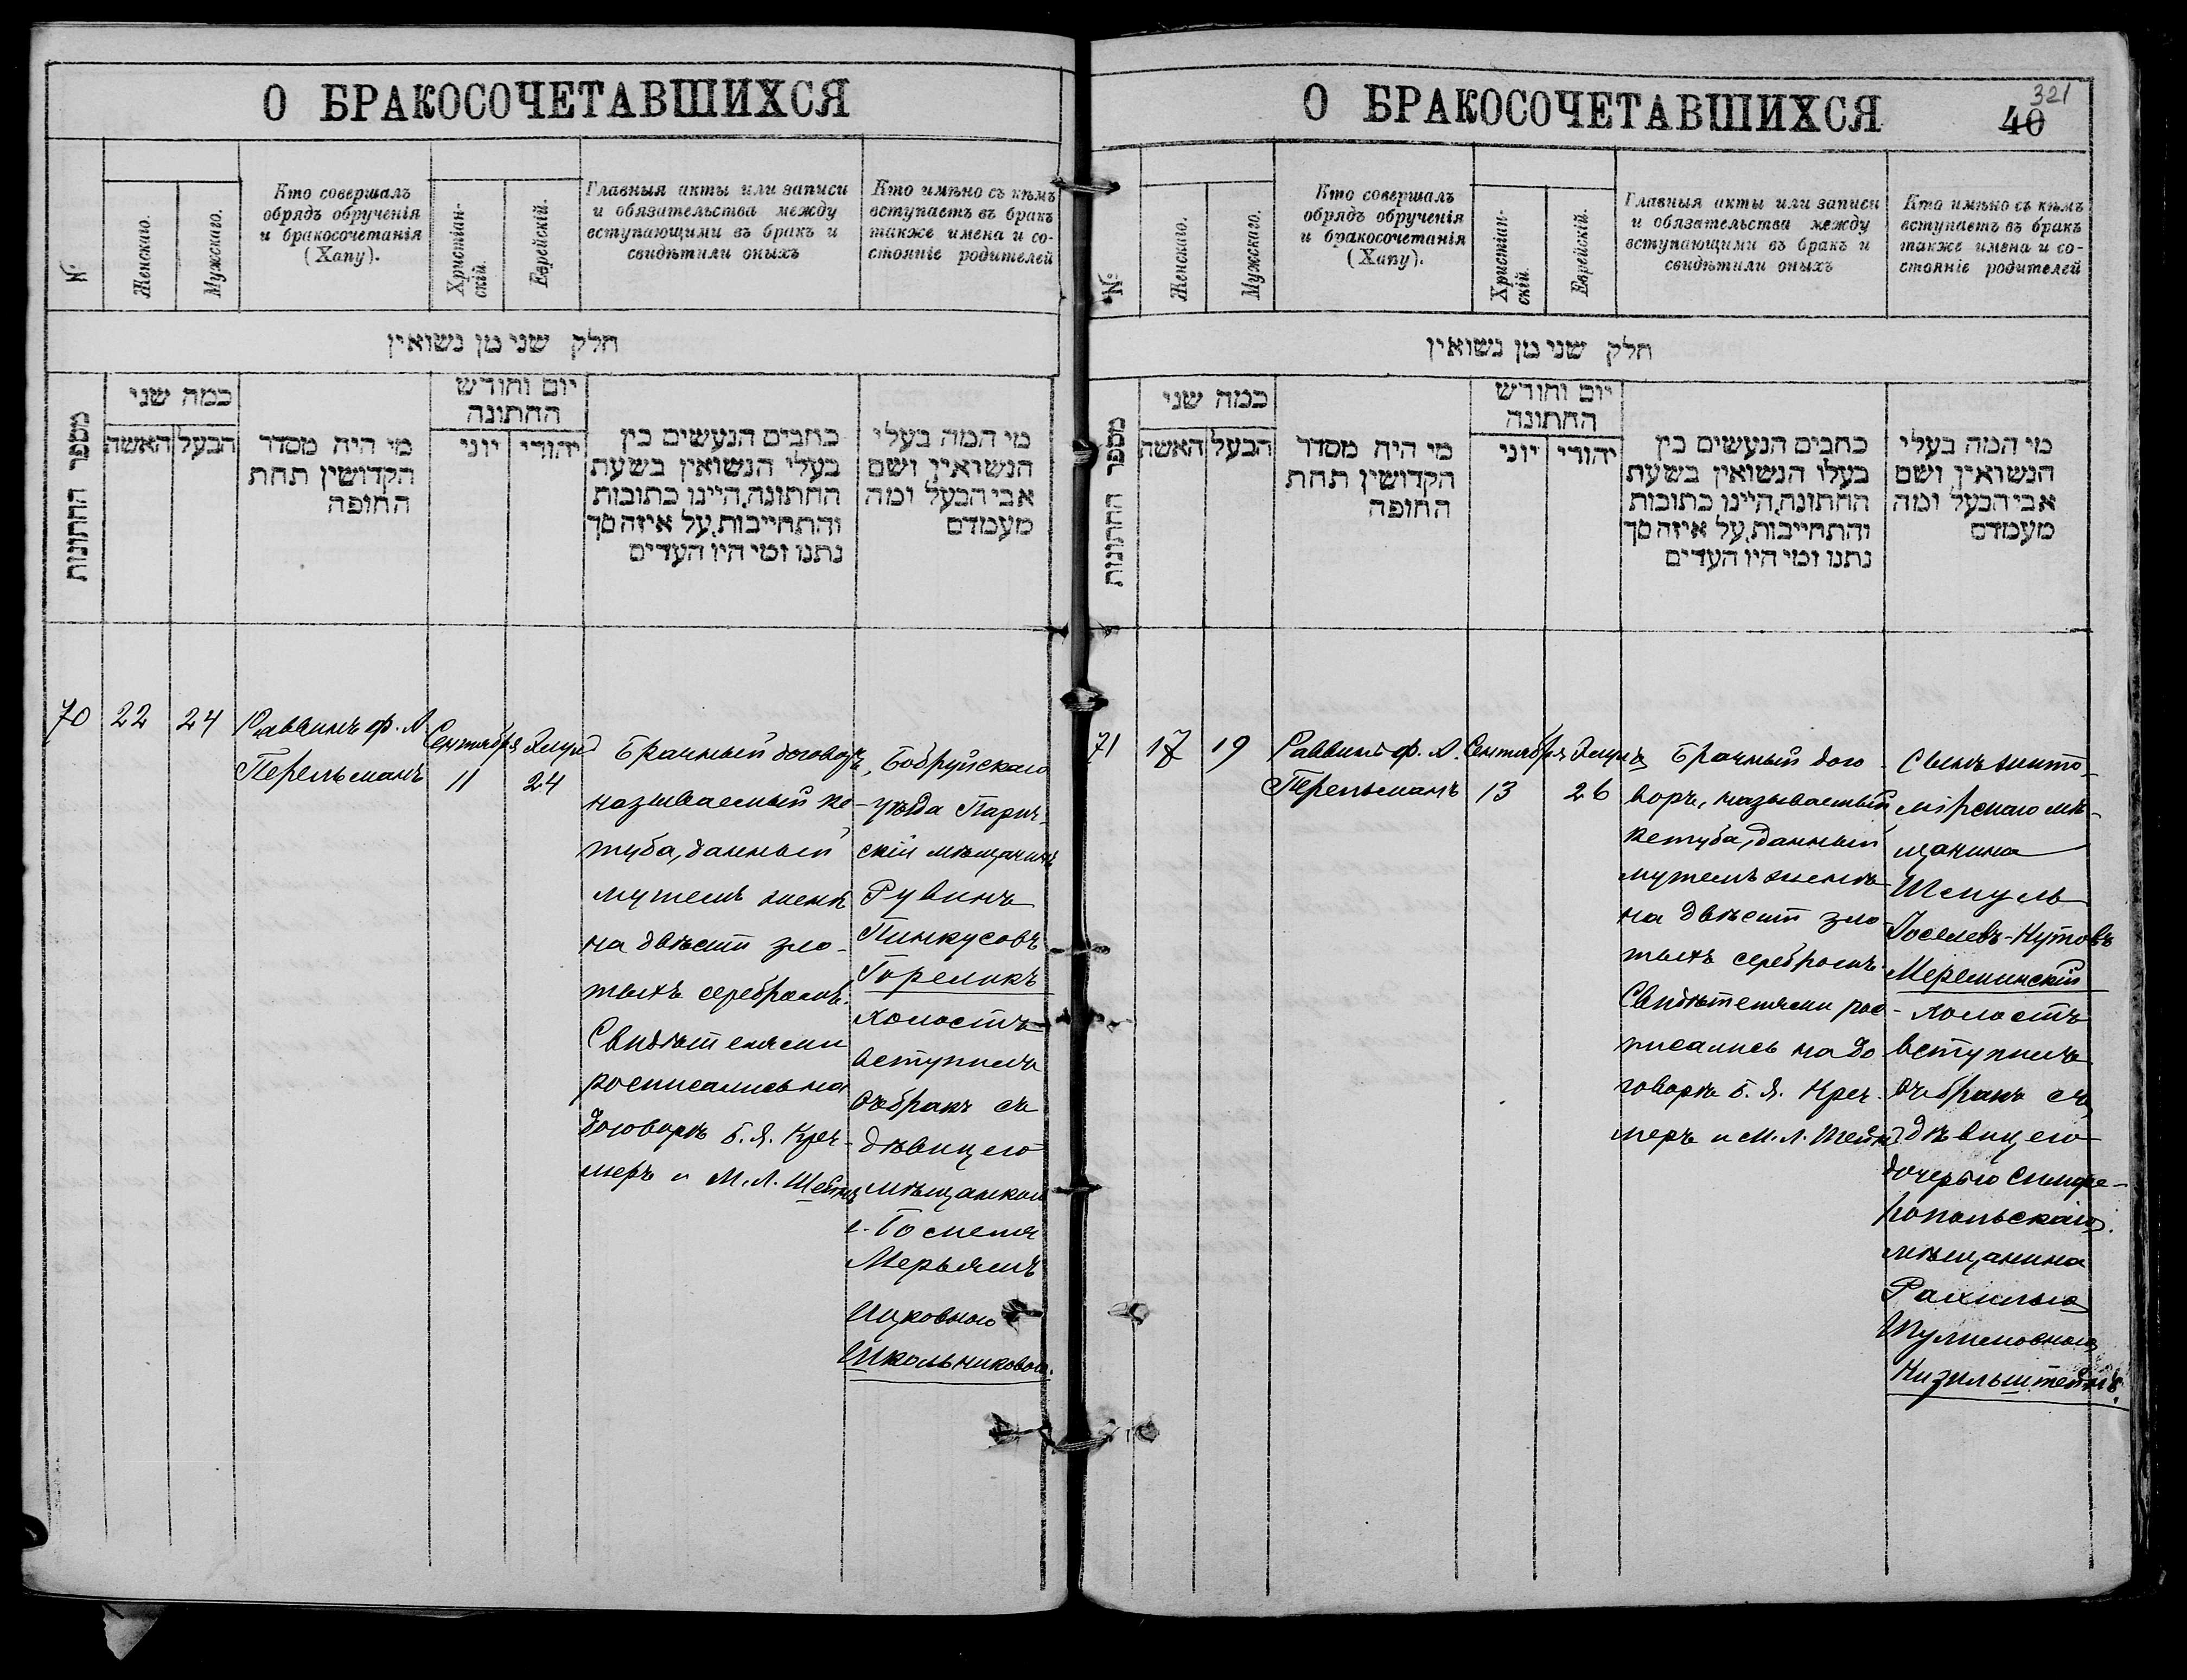 О БРАКОСОЧЕТАВШИХСЯ
№
Женскаго.
Мужскаго.
Кто совершалъ
обрядъ обрученія
и бракосочетанія
(Хапу).
Христіан-
скій.
Еврейскій.
Главныя акты или записи
и обязательства между
вступающими въ бракъ и
свидѣтили оныхъ
Кто имѣно съ кѣмъ
вступаетъ въ бракъ
также имена и со-
стояніе родителей
חלק שני מן נשואין
מספר החתונות
כמה שני
האשה
הבעל
מי היה מסדר
הקדושין תחת
החופה
יום וחודש
החתונה
יוני
יהודי
כתבים הנעשים בין
בעלי הנשואין בשעת
החתונה, היינו כתובות
והתחייבות, על איזה סך
נתנו ומי היו העדים
מי המה בעלי
הנשואין ושם
אבי הבעל ומה
מעמדם
70
22
24
Раввинъ Ф. Л.
Перельманъ
Сентября
11
Элулъ
24
Брачный договоръ,
называемый ке-
туба, данный
мужемъ женѣ
на двѣсти зло-
тыхъ серебромъ.
Свидѣтелями
росписались на
договорѣ Б. Я. Креч-
меръ и М. Л. Шейнъ
Бобруйскаго
уѣзда Парич-
скій мѣщанинъ
Рувинъ
Пинкусовъ
Гореликъ
холостъ
вступилъ
въ бракъ съ
дѣвицею
мѣщанкой
г. Гомеля
Мерьямъ
Ицковною
Школьниковой.
О БРАКОСОЧЕТАВШИХСЯ
321
40
№
Женскаго.
Мужскаго.
Кто совершалъ
обрядъ обрученія
и бракосочетанія
(Хапу).
Христіан-
скій.
Еврейскій.
Главныя акты или записи
и обязательства между
вступающими въ бракъ и
свидѣтили оныхъ
Кто имѣно съ кѣмъ
вступаетъ въ бракъ
также имена и со-
стояніе родителей
חלק שני מן נשואין
מספר החתונות
כמה שני
האשה
הבעל
מי היה מסדר
הקדושין תחת
החופה
יום וחודש
החתונה
יוני
יהודי
כתבים הנעשים בין
בעלי הנשואין בשעת
החתונה, היינו כתובות
והתחייבות, על איזה סך
נתנו ומי היו העדים
מי המה בעלי
הנשואין ושם
אבי הבעל ומה
מעמדם
71
17
19
Раввинъ Ф. Л.
Перельманъ
Сентября
13
Элулъ
26
Брачный дого-
воръ, называемый
кетуба, данный
мужемъ женѣ
на двѣсти зло-
тыхъ серебромъ.
Свидѣтелями рос-
писались на до-
говорѣ Б. Я. Креч-
меръ и М. Л. Шейнъ
Сынъ жито-
мірскаго мѣ-
щанина
Шмуль
Іоселевъ-Нутовъ
Мереминскій
холостъ
вступилъ
въ бракъ съ
дѣвицею
дочерью симфе-
ропольскаго
мѣщанина
Рахилью
Шулимовною
Кизильштейнъ.